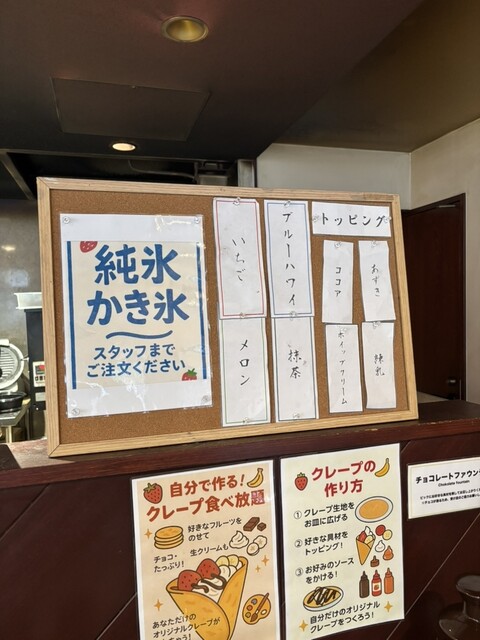 純氷
かき氷
スタッフまで
ご注文ください
いちご
ブルーハワイ
メロン
抹茶
トッピング
ココア
あずき
ホイップクリーム
練乳
自分で作る!
クレープ食べ放題
好きなフルーツを
のせて
チョコ・
たっぷり!
生クリームも
あなただけの
オリジナルクレープが
クレープの
作り方
① クレープ生地を
お皿に広げる
② 好きな具材を
トッピング!
③ お好みのソース
をかける!
自分だけのオリジナル
クレープをつくろう!
チョコレートファウン
Chocolate Fountain